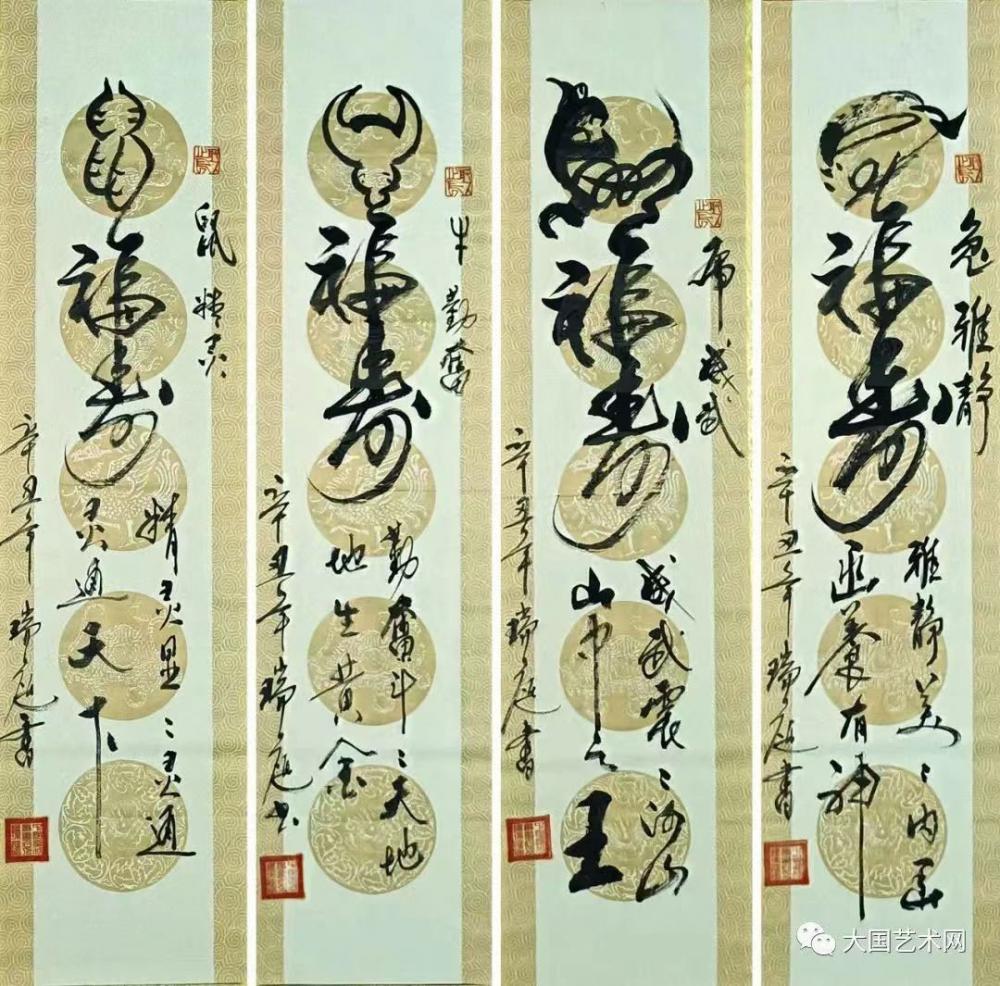 鼠 精灵
鼠福寿
精灵显々灵通
灵通天下
辛丑年 瑞庭書
牛 勤奮
牛福寿
勤奮斗々天地
地生黄金
辛丑年瑞庭书
虎 威武
虎福寿
威武震々河山
山中之王
辛丑年瑞庭書
兔雅静
兔福寿
雅静美々内函
函养有神
辛丑年瑞庭書
大国艺术网